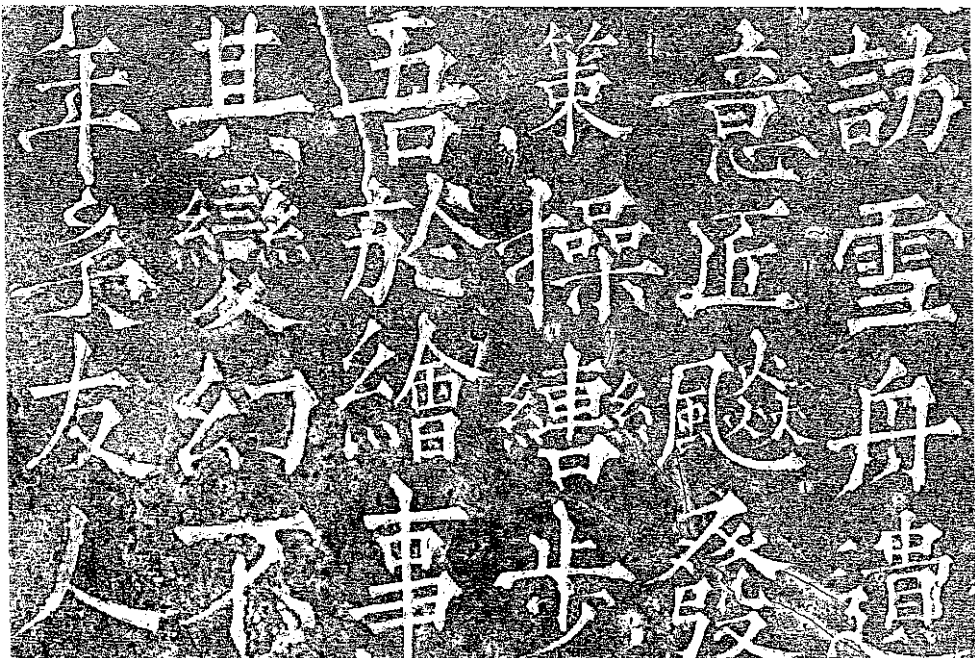 訪雪舟遺
意匠飈發
策操轡步
吾於繪事
其變幻不
年矣友人